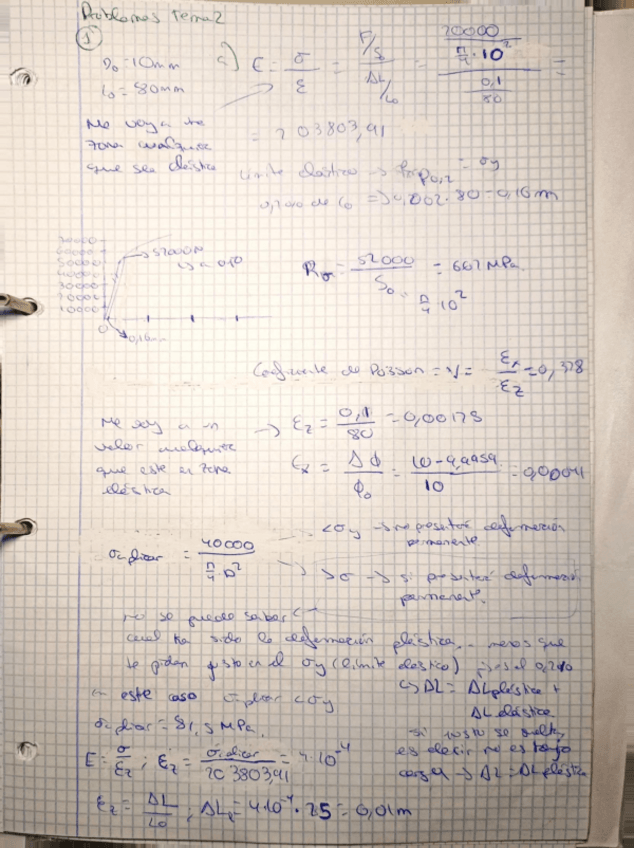 Problemas Tema 2
1
D₀ = 10mm
L₀ = 80mm
a) E = σ/ε = (F/S₀)/(ΔL/L₀) = (20000/(π/4 · 10²))/(0,1/80) =
Me voy a
zona cualquiera
que sea elástica
= 203803,91
Límite elástico → Rp0,2 = σy
0,2% de L₀ => 0,002 · 80 = 0,16m
60000
50000
40000
30000
20000
10000
0
→ 52000N
0,16mm
= 52000/(S₀ π/4 10²) = 662 MPa
Coeficiente de Poisson = ν = εx/εz = 0,328
Me voy a un
valor cualquiera
que este en zona
elástica
→ εz = 0,1/80 = 0,00125
εx = ΔΦ/Φ₀ = (10 - 9,9959)/10 = 0,00041
= 40000/(π/4 D²)
< σy → no presentará deformación
permanente
> σ → si presentará deformación
permanent.
no se puede saber
cual ha sido la deformación plástica, menos que
te pidan justo en el σy (límite elástico) es el 0,2%
este caso < σy
= 81,5 MPa.
↳ ΔL = ΔL plástica +
ΔL elástica
si justo se suelta,
es decir no es bajo
carga → ΔL = ΔL plástica
E = σ/εz ; εz = /203803,91 = 4·10⁻⁴
εz = ΔL/L₀ ; ΔL = 4·10⁻⁴ · 25 = 0,01m